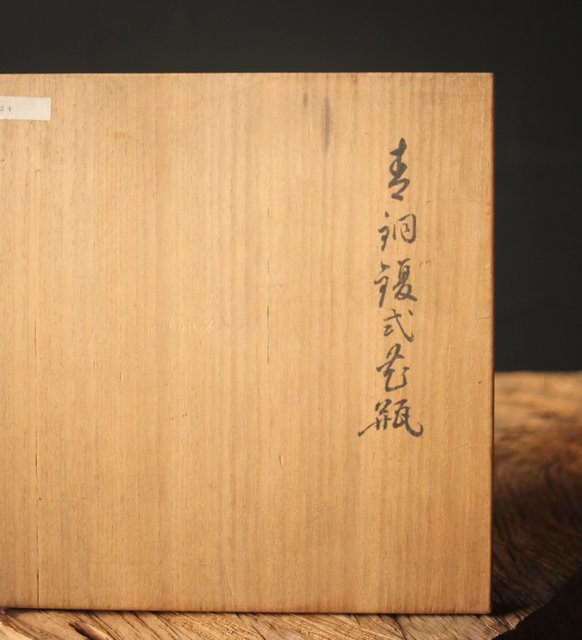 青銅鍑式花瓶